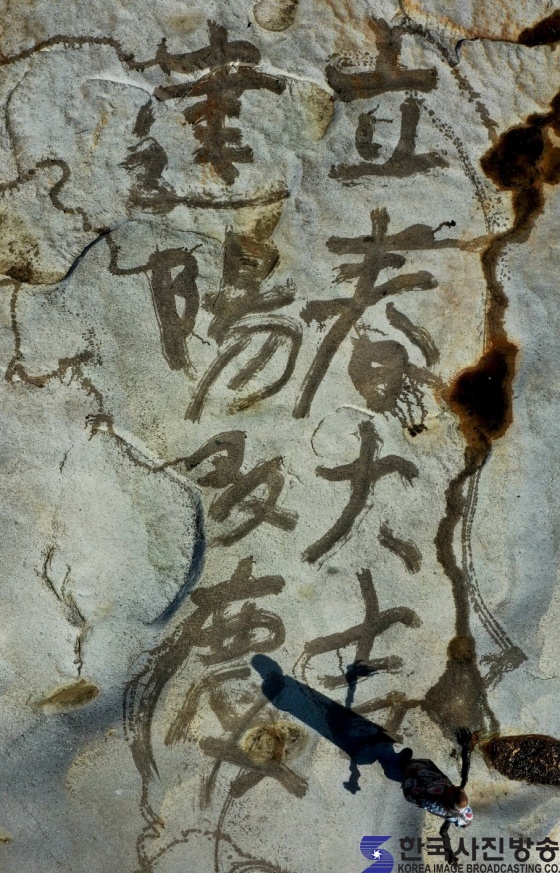 立春大吉
建陽多慶
한국사진방송
KOREA IMAGE BROADCASTING CO.